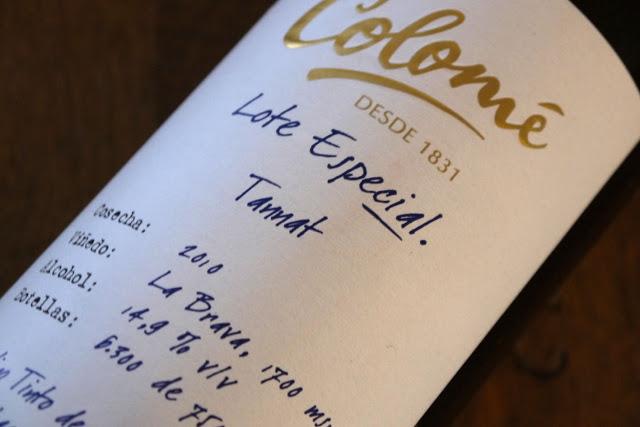 Colomé
DESDE 1831
Lote Especial.
Tannat
Cosecha: 2010
Viñedo: La Brava, 1700 ms
Alcohol: 14,9 % v/v
Botellas: 6.300 de 75
Tinto de